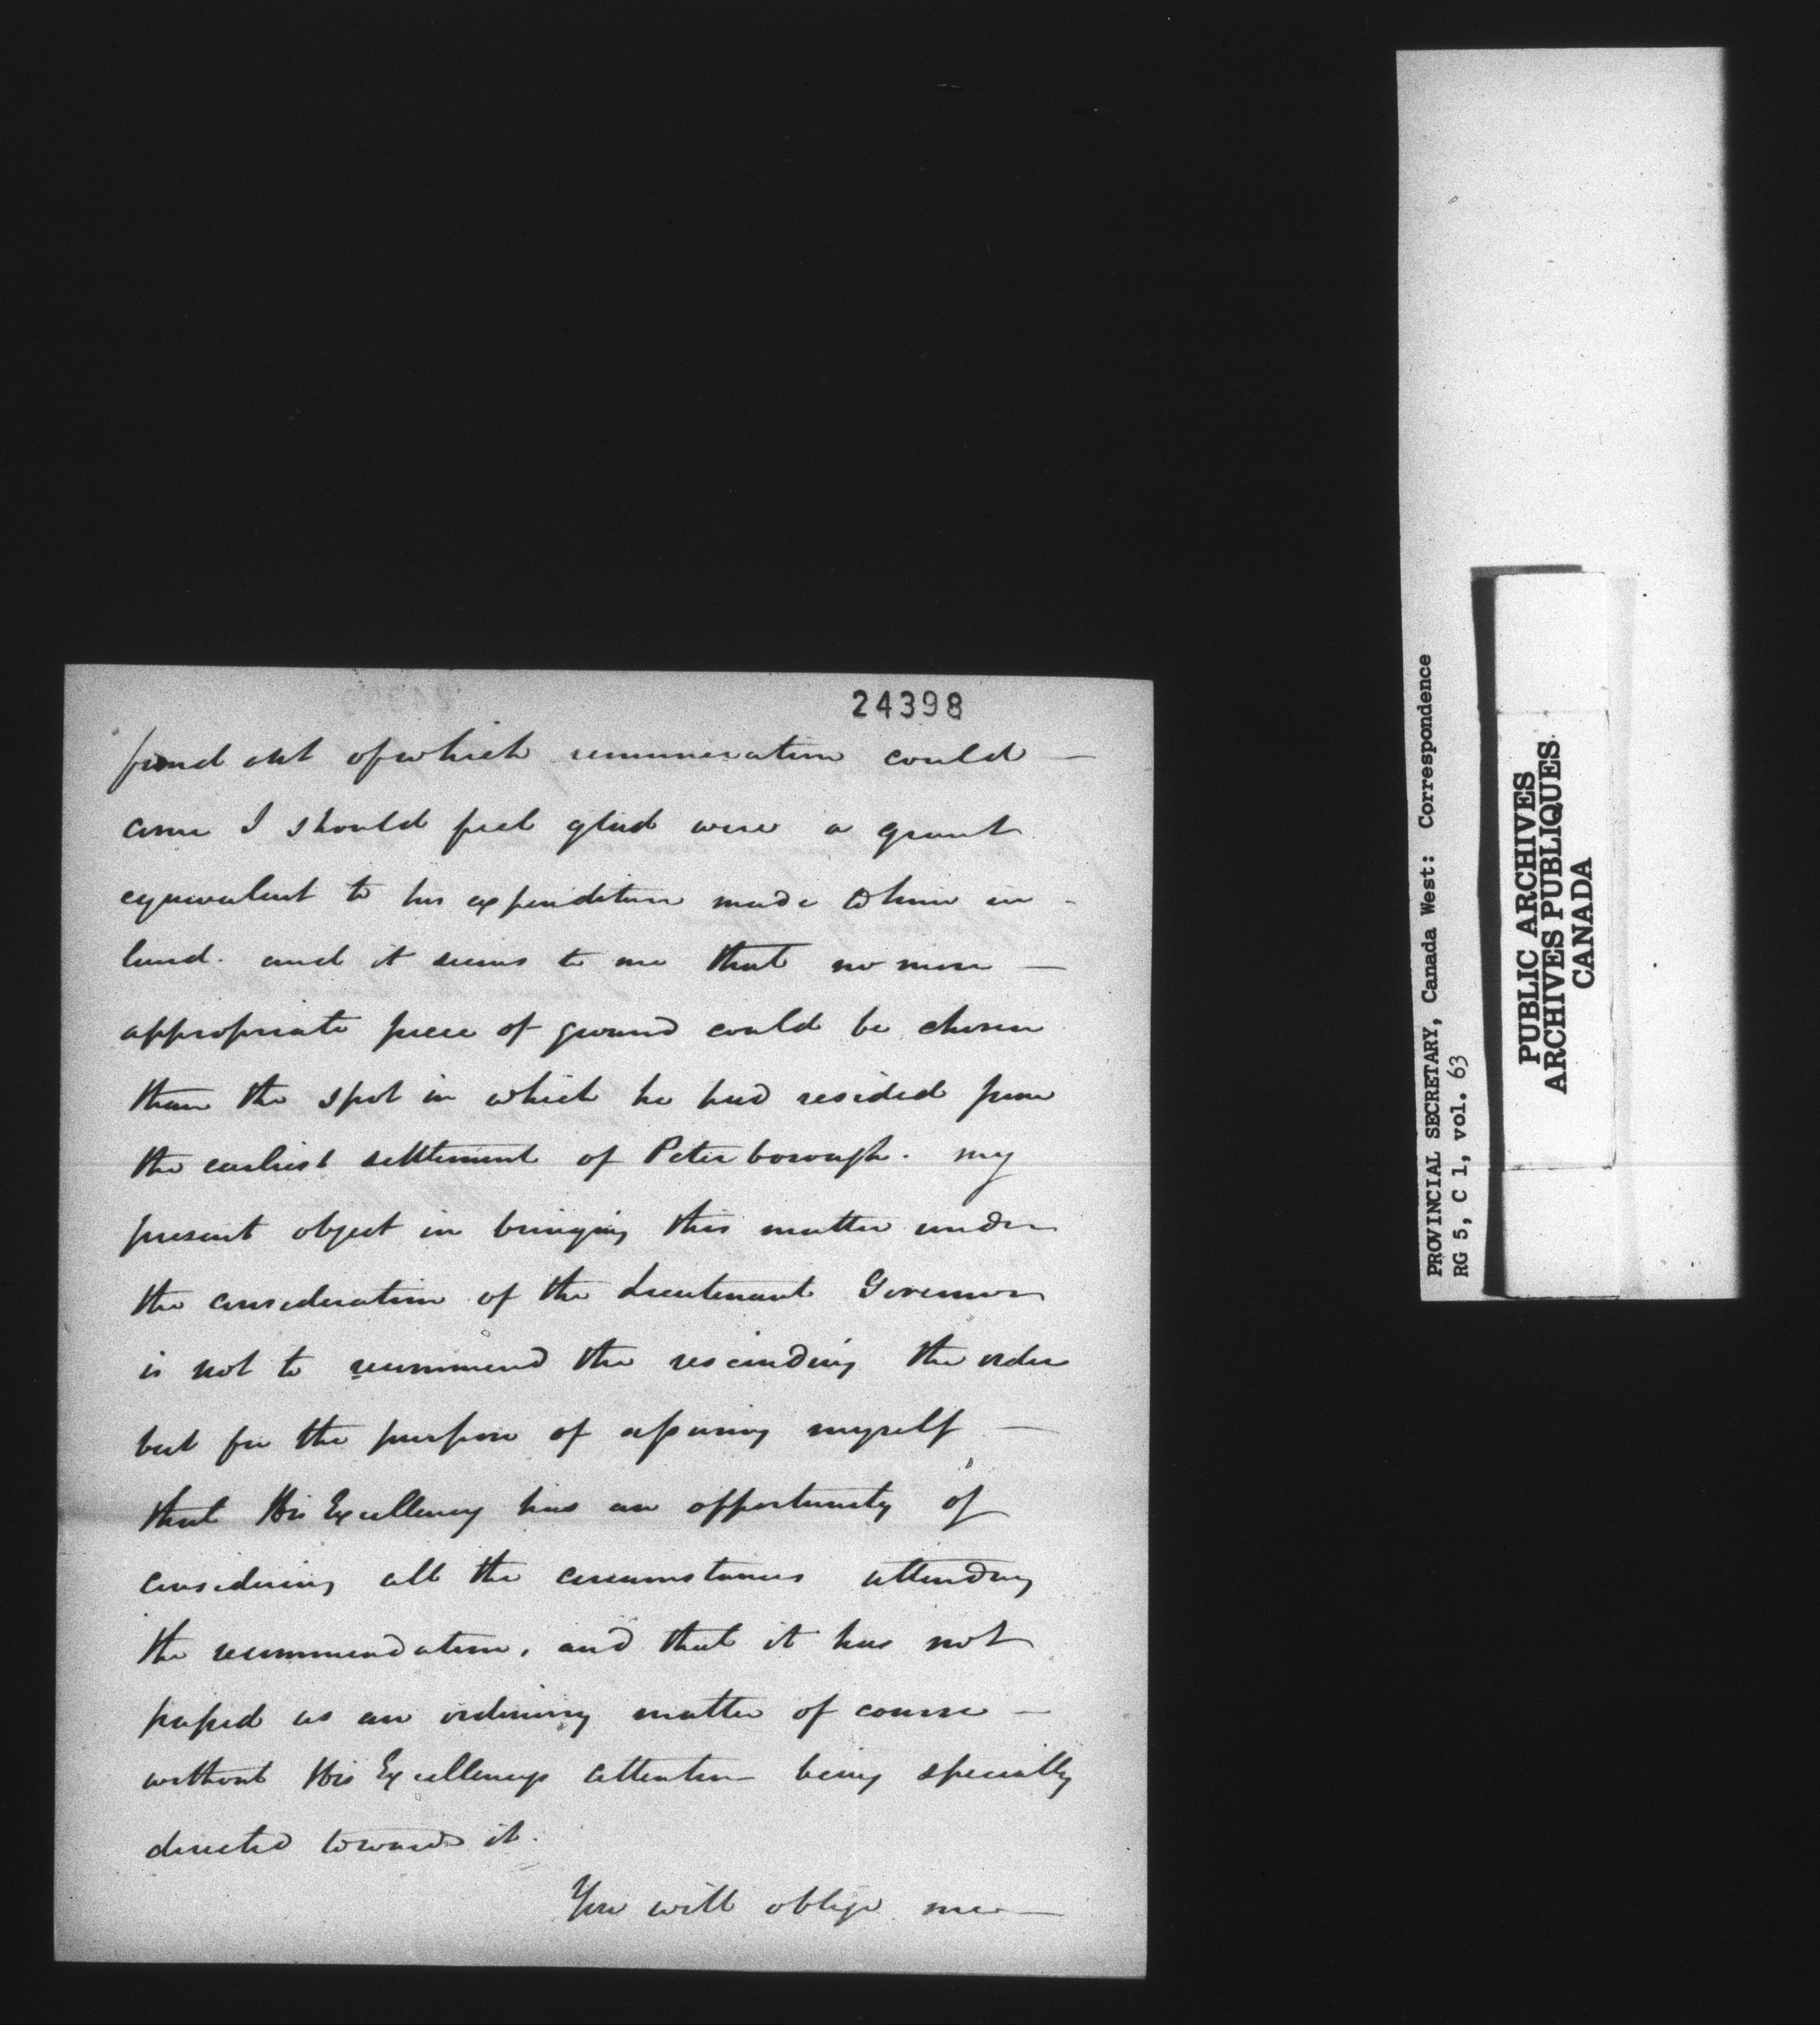 24398
fund out of which remuneration could —
come I should feel glad were a grant
equivalent to his expenditure made to him in -
land. and it seems to me that no more —
appropriate piece of ground could be chosen
than the spot in which he had resided from
the earliest settlement of Peterborough. my
present object in bringing this matter under
the consideration of the Lieutenant Governor
is not to recommend the rescinding the order
but for the purpose of assuring myself —
that His Excellency has an opportunity of
considering all the circumstances attending
the recommendation, and that it has not
passed as an ordinary matter of course —
without His Excellencys attention being specially
directed towards it.
You will oblige me —
PROVINCIAL SECRETARY, Canada West: Correspondence
RG 5, C 1, vol. 63
PUBLIC ARCHIVES
ARCHIVES PUBLIQUES
CANADA